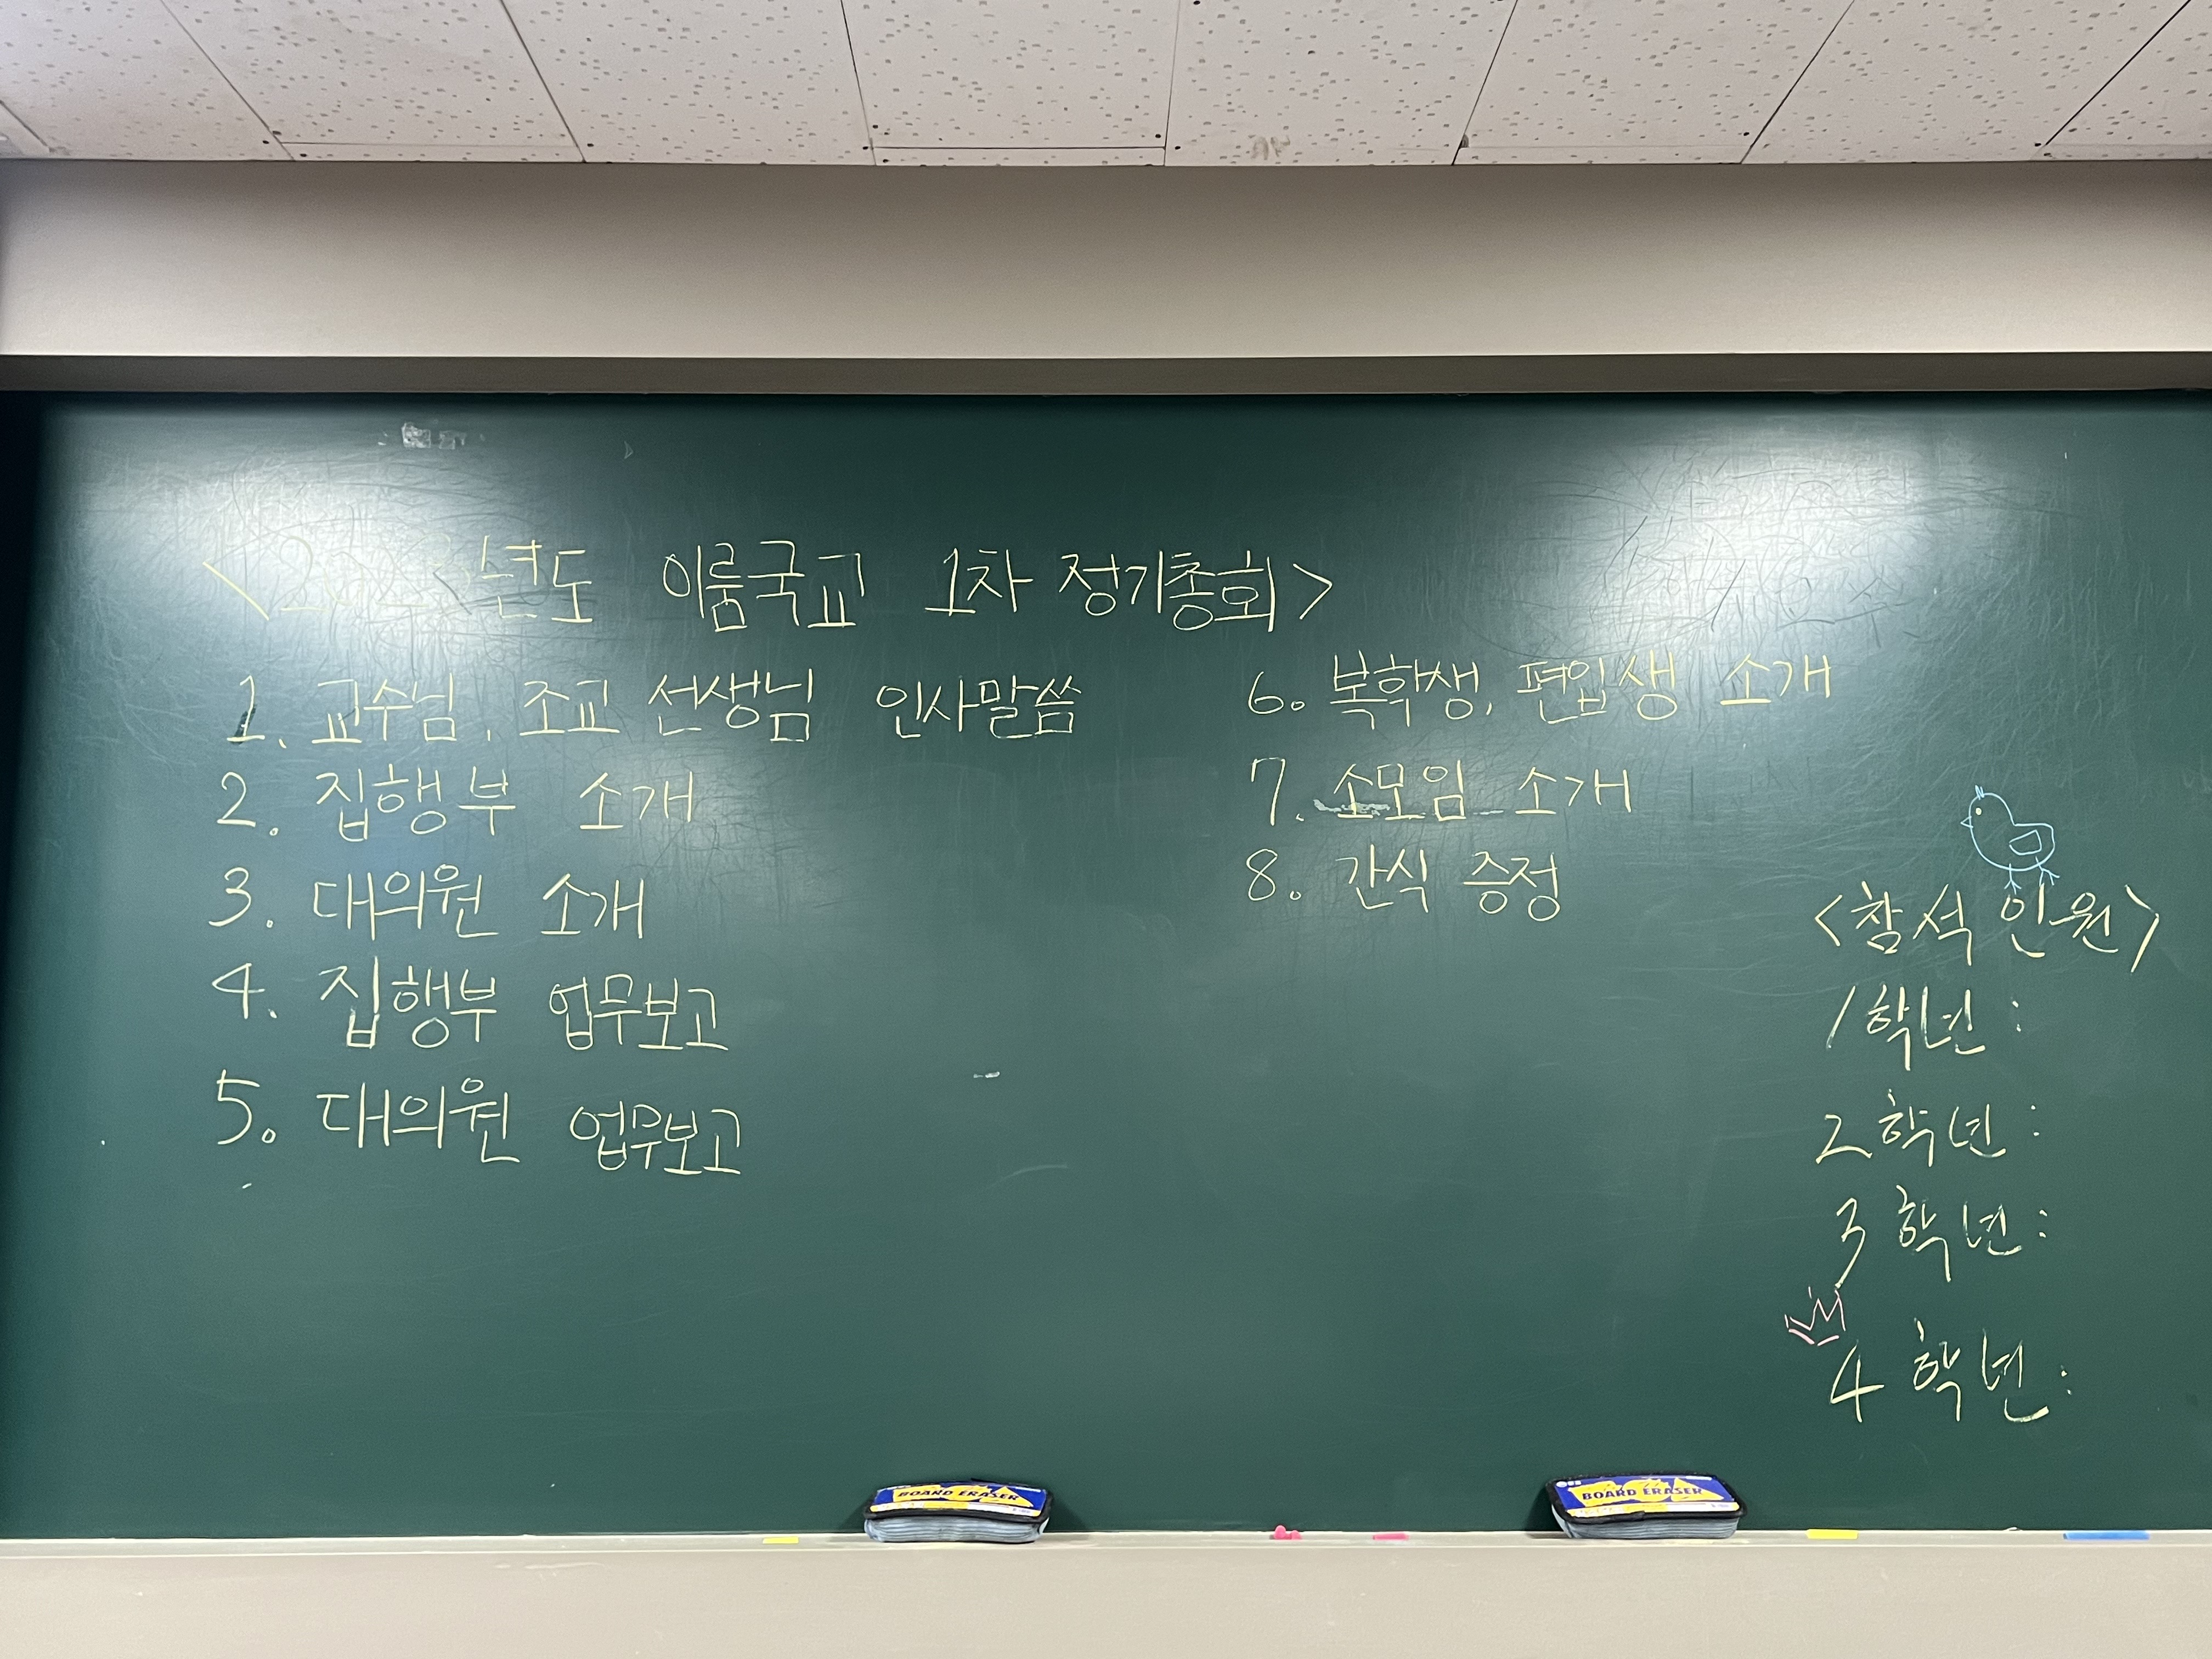 년도 이룸국교 1차 정기총회>
1. 교수님, 조교 선생님 인사말씀
2. 집행부 소개
3. 대의원 소개
4. 집행부 업무보고
5. 대의원 업무보고
6. 복학생, 편입생 소개
7. 소모임 소개
8. 간식 증정
<참석 인원>
1학년 :
2학년 :
3학년 :
4학년 :
BOARD ERASER
BOARD ERASER